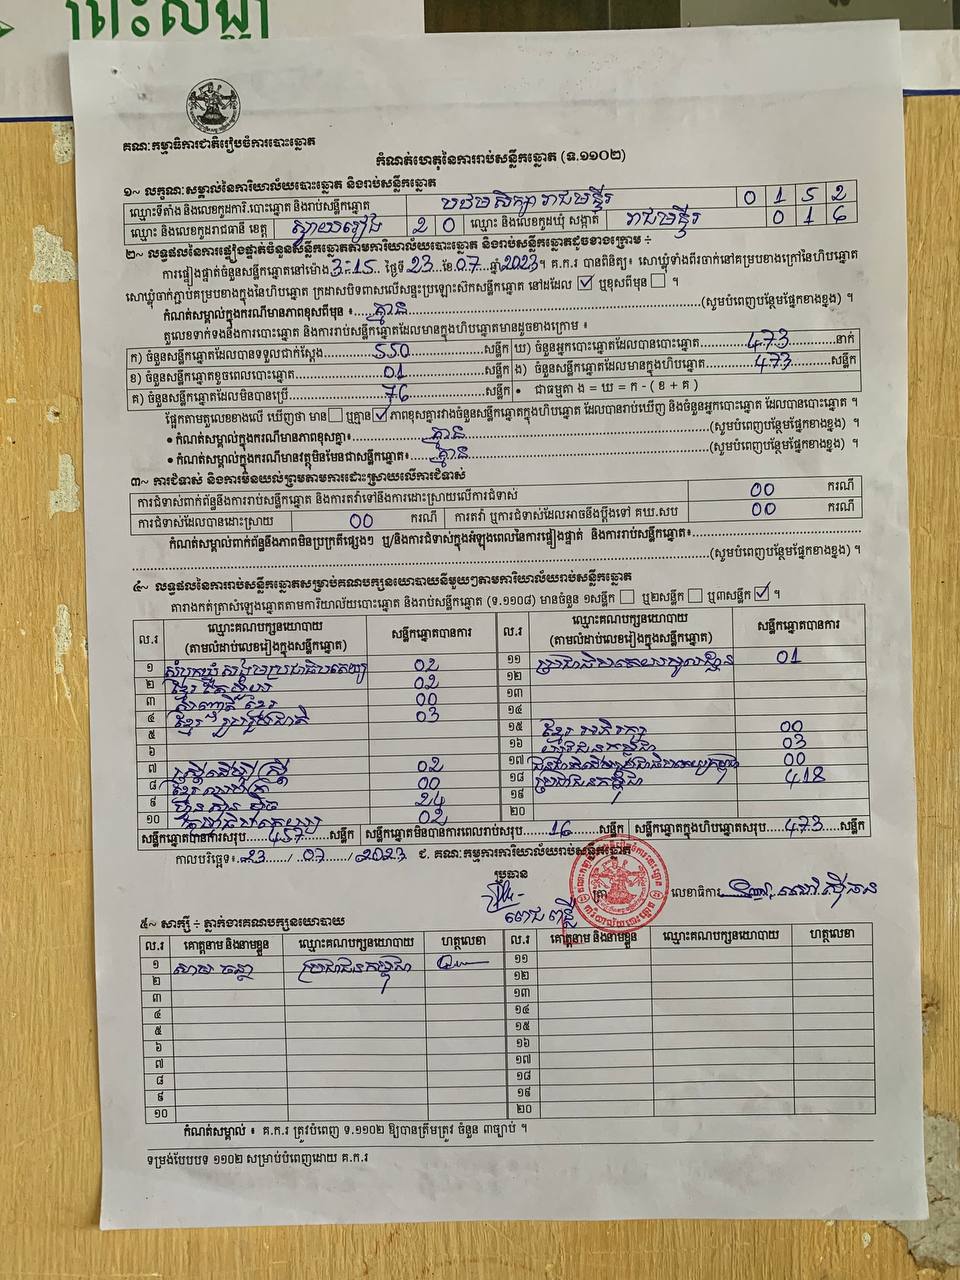 គណៈកម្មាធិការជាតិរៀបចំការបោះឆ្នោត
កំណត់ហេតុនៃការរាប់សន្លឹកឆ្នោត (ទ.១១០២)
១~ លក្ខណៈសម្គាល់នៃការិយាល័យបោះឆ្នោត និងរាប់សន្លឹកឆ្នោត
ឈ្មោះទីតាំង និងលេខកូដការិ.បោះឆ្នោត និងរាប់សន្លឹកឆ្នោត បឋមសិក្សា រាជមន្ទីរ 0 1 5 2
ឈ្មោះ និងលេខកូដរាជធានី ខេត្ត ស្វាយរៀង 2 0 ឈ្មោះ និងលេខកូដឃុំ សង្កាត់ រាជមន្ទីរ 0 1 6
២~ លទ្ធផលនៃការផ្ទៀងផ្ទាត់ចំនួនសន្លឹកឆ្នោតតាមការិយាល័យបោះឆ្នោត និងរាប់សន្លឹកឆ្នោតដូចខាងក្រោម ÷
ការផ្ទៀងផ្ទាត់ចំនួនសន្លឹកឆ្នោតនៅម៉ោង 3:15 ថ្ងៃទី 23 ខែ 07 ឆ្នាំ 2023 ។ គ.ក.រ បានពិនិត្យ៖ សោឃ្លុំទាំងពីរចាក់នៅគម្របខាងក្រៅនៃហិបឆ្នោត
សោឃ្លុំចាក់ភ្ជាប់គម្របខាងក្នុងនៃហិបឆ្នោត ក្រដាសបិទពាសលើសន្ទះប្រឡោះស៊ីកសន្លឹកឆ្នោត នៅដដែល ☑ ឬខុសពីមុន ☐ ។
កំណត់សម្គាល់ក្នុងករណីមានភាពខុសពីមុន ៖ គ្មាន (សូមបំពេញបន្ថែមផ្នែកខាងខ្នង) ។
តួលេខទាក់ទងនឹងការបោះឆ្នោត និងការរាប់សន្លឹកឆ្នោតដែលមានក្នុងហិបឆ្នោតមានដូចខាងក្រោម ៖
ក) ចំនួនសន្លឹកឆ្នោតដែលបានទទួលជាក់ស្តែង 550 សន្លឹក ឃ) ចំនួនអ្នកបោះឆ្នោតដែលបានបោះឆ្នោត 473 នាក់
ខ) ចំនួនសន្លឹកឆ្នោតខូចពេលបោះឆ្នោត 01 សន្លឹក ង) ចំនួនសន្លឹកឆ្នោតដែលមានក្នុងហិបឆ្នោត 473 សន្លឹក
គ) ចំនួនសន្លឹកឆ្នោតដែលមិនបានប្រើ 76 សន្លឹក • ជាធម្មតា ង = ឃ = ក - ( ខ + គ )
ផ្អែកតាមតួលេខខាងលើ ឃើញថា មាន ☐ ឬគ្មាន ☑ ភាពខុសគ្នារវាងចំនួនសន្លឹកឆ្នោតក្នុងហិបឆ្នោត ដែលបានរាប់ឃើញ និងចំនួនអ្នកបោះឆ្នោត ដែលបានបោះឆ្នោត ។
• កំណត់សម្គាល់ក្នុងករណីមានភាពខុសគ្នា៖ គ្មាន (សូមបំពេញបន្ថែមផ្នែកខាងខ្នង) ។
• កំណត់សម្គាល់ក្នុងករណីមានវត្ថុមិនមែនជាសន្លឹកឆ្នោត៖ គ្មាន (សូមបំពេញបន្ថែមផ្នែកខាងខ្នង) ។
៣~ ការជំទាស់ និងការមិនយល់ព្រមតាមការដោះស្រាយលើការជំទាស់
ការជំទាស់ពាក់ព័ន្ធនឹងការរាប់សន្លឹកឆ្នោត និងការតវ៉ាទៅនឹងការដោះស្រាយលើការជំទាស់ 00 ករណី
ការជំទាស់ដែលបានដោះស្រាយ 00 ករណី ការតវ៉ា ឬការជំទាស់ដែលអាចនឹងប្តឹងទៅ គឃ.សប 00 ករណី
កំណត់សម្គាល់ពាក់ព័ន្ធនឹងភាពមិនប្រក្រតីផ្សេងៗ ឬ/និងការជំទាស់ក្នុងអំឡុងពេលនៃការផ្ទៀងផ្ទាត់ និងការរាប់សន្លឹកឆ្នោត៖
(សូមបំពេញបន្ថែមផ្នែកខាងខ្នង) ។
៤~ លទ្ធផលនៃការរាប់សន្លឹកឆ្នោតសម្រាប់គណបក្សនយោបាយនីមួយៗតាមការិយាល័យរាប់សន្លឹកឆ្នោត
តារាងកត់ត្រាសំឡេងឆ្នោតតាមការិយាល័យបោះឆ្នោត និងរាប់សន្លឹកឆ្នោត (ទ.១១០៨) មានចំនួន ១សន្លឹក ☐ ឬ២សន្លឹក ☐ ឬ៣សន្លឹក ☑ ។
ល.រ ឈ្មោះគណបក្សនយោបាយ (តាមលំដាប់លេខរៀងក្នុងសន្លឹកឆ្នោត) សន្លឹកឆ្នោតបានការ ល.រ ឈ្មោះគណបក្សនយោបាយ (តាមលំដាប់លេខរៀងក្នុងសន្លឹកឆ្នោត) សន្លឹកឆ្នោតបានការ
១ សំបុកឃ្មុំសង្គមប្រជាធិបតេយ្យ 02 ១១ 01
២ ខ្មែរ 02 ១២
៣ ខ្មែរ 00 ១៣
៤ ខ្មែររួបរួមជាតិ 03 ១៤
៥ ១៥ ខ្មែរអភិរក្ស 00
៦ ១៦ 03
៧ ស្ត្រីដើម្បីស្ត្រី 02 ១៧ 00
៨ ខ្មែរ 00 ១៨ ប្រជាជនកម្ពុជា 418
៩ 24 ១៩
១០ 02 ២០
សន្លឹកឆ្នោតបានការសរុប 457 សន្លឹក សន្លឹកឆ្នោតមិនបានការពេលរាប់សរុប 16 សន្លឹក សន្លឹកឆ្នោតក្នុងហិបឆ្នោតសរុប 473 សន្លឹក
កាលបរិច្ឆេទ៖ 23 / 07 / 2023 ៩. គណៈកម្មការការិយាល័យរាប់សន្លឹកឆ្នោត
ប្រធាន ត្រា លេខាធិការ
៥~ សាក្សី ÷ ភ្នាក់ងារគណបក្សនយោបាយ
ល.រ គោត្តនាម និងនាមខ្លួន ឈ្មោះគណបក្សនយោបាយ ហត្ថលេខា ល.រ គោត្តនាម និងនាមខ្លួន ឈ្មោះគណបក្សនយោបាយ ហត្ថលេខា
១ ប្រជាជនកម្ពុជា ១១
២ ១២
៣ ១៣
៤ ១៤
៥ ១៥
៦ ១៦
៧ ១៧
៨ ១៨
៩ ១៩
១០ ២០
កំណត់សម្គាល់ ៖ គ.ក.រ ត្រូវបំពេញ ទ.១១០២ ឱ្យបានត្រឹមត្រូវ ចំនួន ៣ច្បាប់ ។
ទម្រង់បែបបទ ១១០២ សម្រាប់បំពេញដោយ គ.ក.រ